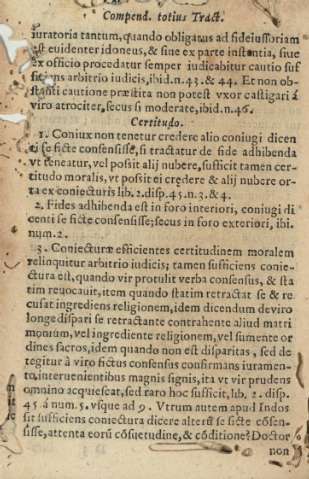 Compend. totius Tract.
iuratoria tantum, quando obligatus ad fideiussoriam
est euidenter idoneus, & sine ex parte instantia, siue
ex officio procedatur semper iudicabitur cautio suf
ficiens arbitrio iudicis, ibid. n. 43. & 44. Et non ob-
stanti cautione præstita non potest vxor castigari á
viro atrociter, secus si moderate, ibid. n. 46.
Certitudo.
1. Coniux non tenetur credere alio coniugi dicen
ti se ficte consensisse, si tractatur de fide adhibenda
vt teneatur, vel possit alij nubere, sufficit tamen cer-
titudo moralis, vt possit ei credere & alij nubere or-
ta ex coniecturis lib. 2. disp. 45. n. 3. & 4.
2. Fides adhibenda est in foro interiori, coniugi di
centi se ficte consensisse; secus in foro exteriori, ibi.
num. 2.
3. Coniecturæ efficientes certitudinem moralem
relinquitur arbitrio iudicis; tamen sufficiens conie-
ctura est, quando vir protulit verba consensus, & sta
tim reuocauit, item quando statim retractat se & re-
cusat ingrediens religionem, idem dicendum de viro
longe dispari se retractante contrahente aliud matri
monium, vel ingrediente religionem, vel sumente or
dines sacros, idem quando non est disparitas, sed de
tegitur à viro fictus consensus confirmans iuramen-
to, interuenientibus magnis signis, ita vt vir prudens
omnino acquiescat, sed raro hoc sufficit, lib. 2. disp.
45 á num. 5. vsque ad 9. Vtrum autem apud Indos
sit sufficiens coniectura dicere alterũ se ficte cõsen-
sisse, attenta eorũ cõsuetudine, & cõditione? Doctor
non